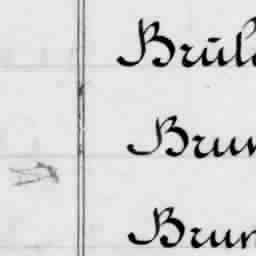 Brül
Brun
Brun